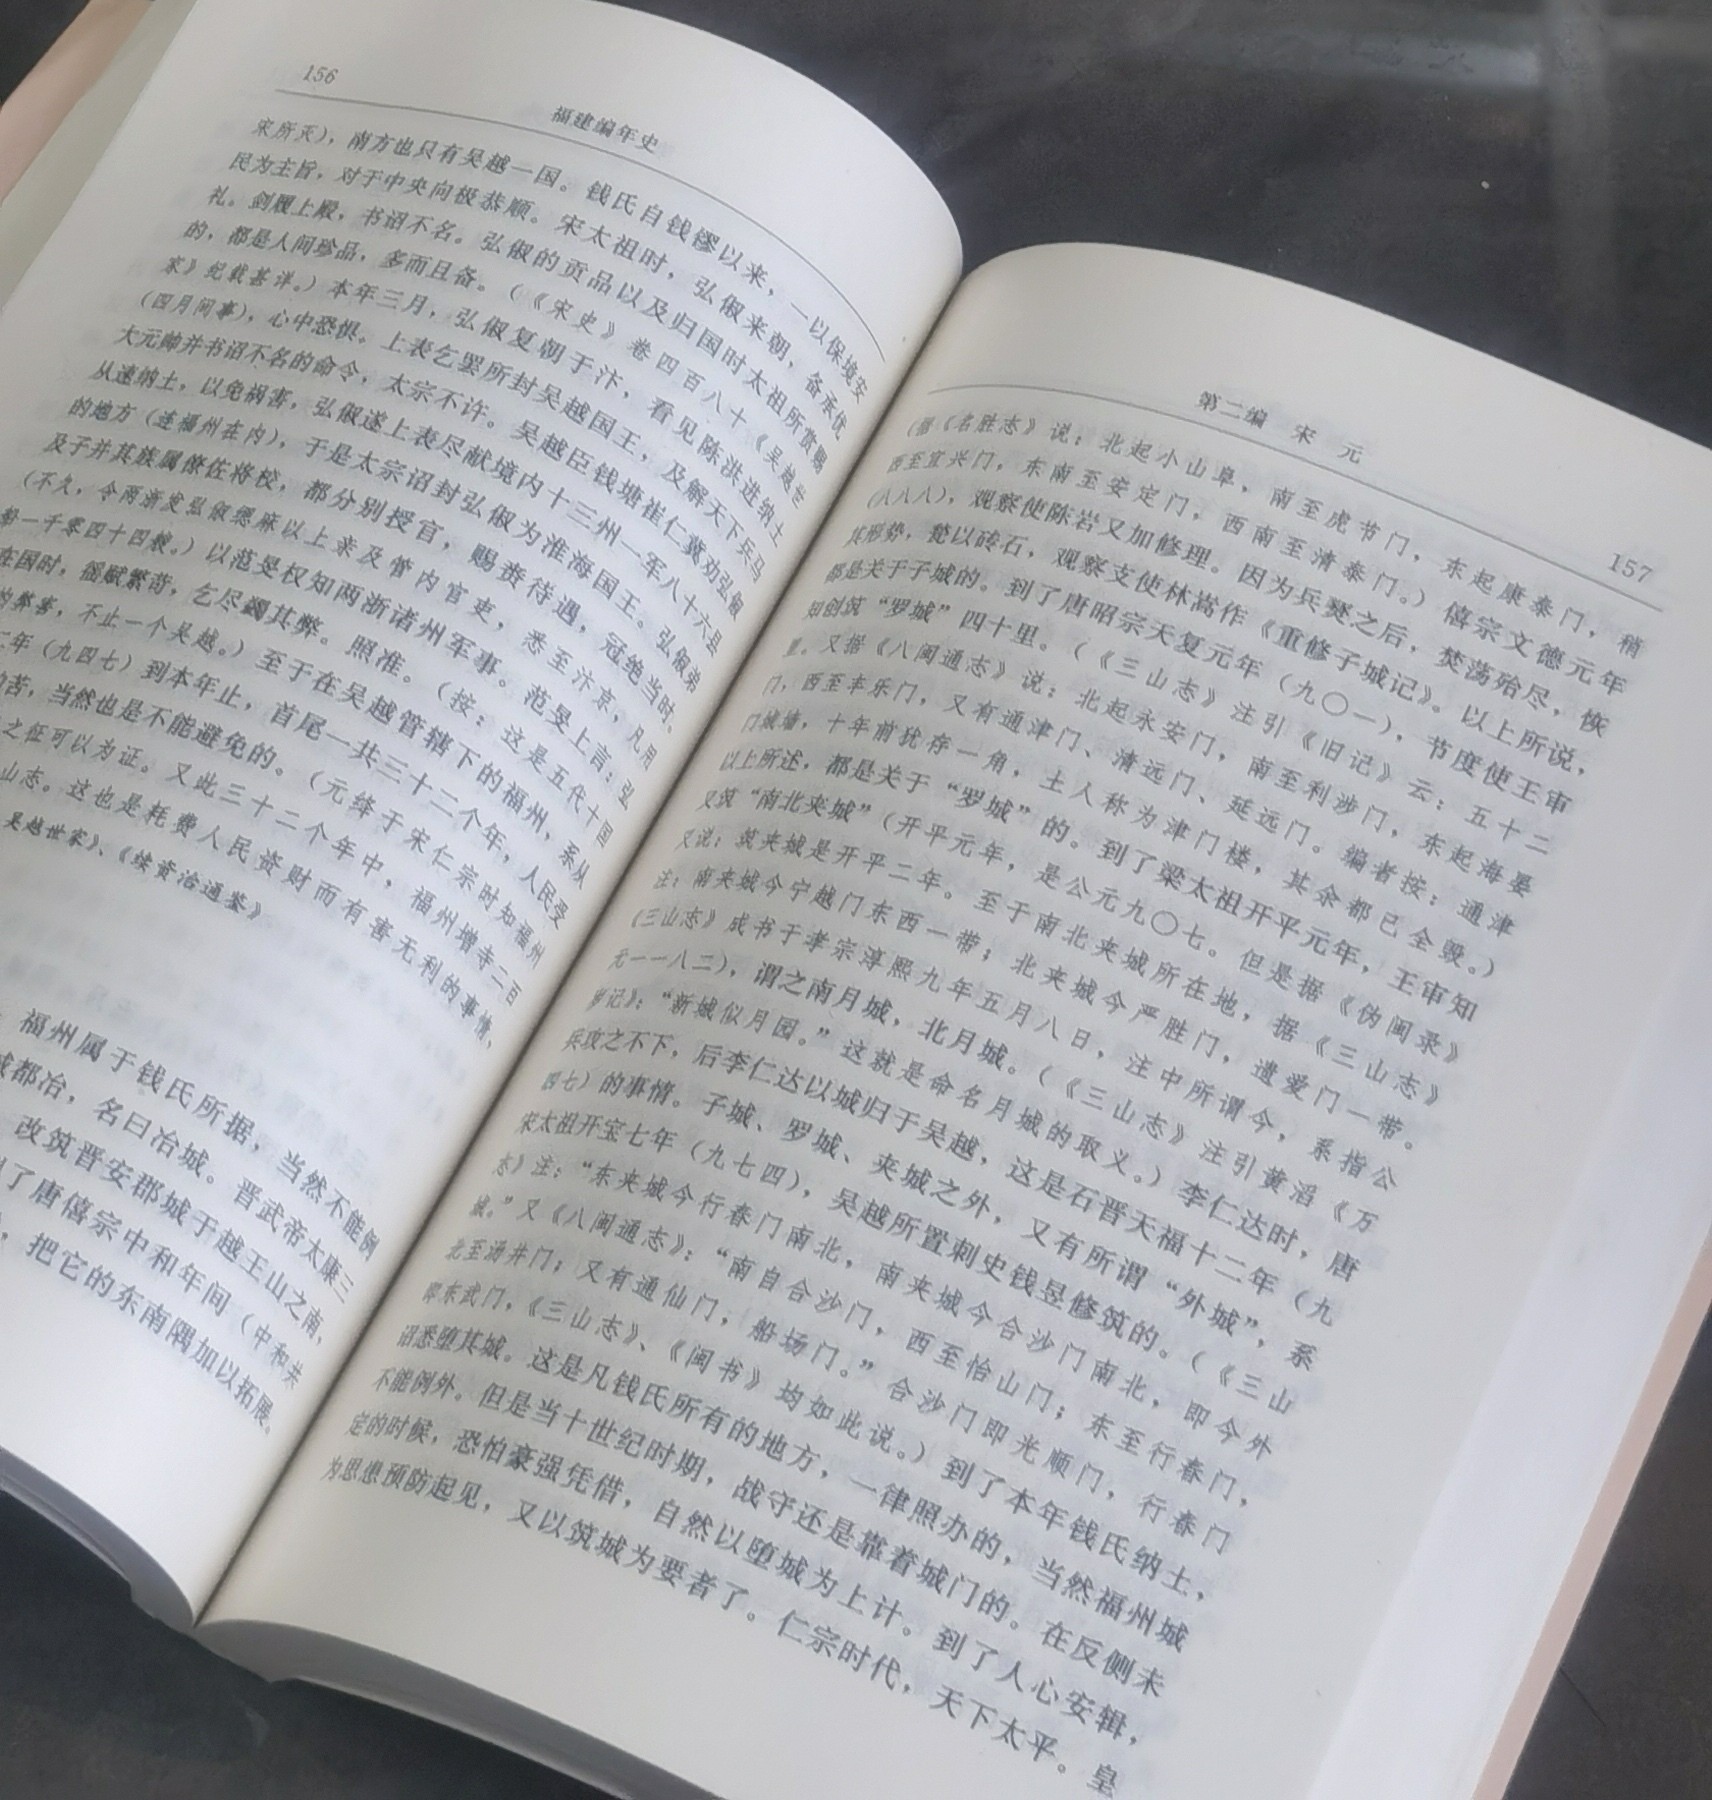 156
福建编年史
宋所灭），南方也只有吴越一国。钱氏自钱镠以来，一以保境安
民为主旨，对于中央向极恭顺。宋太祖时，弘俶来朝，备承优
礼。剑履上殿，书诏不名。弘俶的贡品以及归国时太祖所赏赐
的，都是人间珍品，多而且备。（《宋史》卷四百八十《吴越世
家》纪载甚详。）本年三月，弘俶复朝于汴，看见陈洪进纳土
（四月间事），心中恐惧。上表乞罢所封吴越国王，及解天下兵马
大元帅并书诏不名的命令，太宗不许。吴越臣钱塘崔仁冀劝弘俶
从速纳土，以免祸害，弘俶遂上表尽献境内十三州一军八十六县
的地方（连福州在内），于是太宗诏封弘俶为淮海国王。弘俶弟
及子并其族属僚佐将校，都分别授官，赐赉待遇，冠绝当时。
（不久，令两浙发弘俶缌麻以上亲及管内官吏，悉至汴京，凡用
船一千零四十四艘。）以范旻权知两浙诸州军事。范旻上言：弘
在国时，徭赋繁苛，乞尽蠲其弊。照准。（按：这是五代十国
的弊害，不止一个吴越。）至于在吴越管辖下的福州，系从
二年（九四七）到本年止，首尾一共三十二个年，人民受
苦，当然也是不能避免的。（元绛于宋仁宗时知福州
之征可以为证。又此三十二个年中，福州增寺二百
山志。这也是耗费人民资财而有害无利的事情，
吴越世家》、《续资治通鉴》
福州属于钱氏所据，当然不能例
城都冶，名曰冶城。晋武帝太康三
改筑晋安郡城于越王山之南，
了唐僖宗中和年间（中和共
，把它的东南隅加以拓展。
第二编 宋 元
157
（据《名胜志》说：北起小山阜，南至虎节门，东起康泰门，稍
西至宜兴门，东南至安定门，西南至清泰门。）僖宗文德元年
（八八八），观察使陈岩又加修理。因为兵燹之后，焚荡殆尽，恢
其形势，甃以砖石，观察支使林嵩作《重修子城记》。以上所说，
都是关于子城的。到了唐昭宗天复元年（九〇一），节度使王审
知创筑“罗城”四十里。（《三山志》注引《旧记》云：五十二
里。又据《八闽通志》说：北起永安门，南至利涉门，东起海晏
门，西至丰乐门，又有通津门、清远门、延远门。编者按：通津
门城墙，十年前犹存一角，土人称为津门楼，其余都已全毁。）
以上所述，都是关于“罗城”的。到了梁太祖开平元年，王审知
又筑“南北夹城”（开平元年，是公元九〇七。但是据《伪闽录》
又说：筑夹城是开平二年。至于南北夹城所在地，据《三山志》
注：南夹城今宁越门东西一带；北夹城今严胜门，遗爱门一带。
《三山志》成书于孝宗淳熙九年五月八日，注中所谓今，系指公
元一一八二），谓之南月城，北月城。（《三山志》注引黄滔《万
岁记》：“新城似月园。”这就是命名月城的取义。）李仁达时，唐
兵攻之不下，后李仁达以城归于吴越，这是石晋天福十二年（九
四七）的事情。子城、罗城、夹城之外，又有所谓“外城”，系
宋太祖开宝七年（九七四），吴越所置刺史钱昱修筑的。（《三山
志》注：“东夹城今行春门南北，南夹城今合沙门南北，即今外
城。”又《八闽通志》：“南自合沙门，西至怡山门；东至行春门，
北至汤井门；又有通仙门，船场门。”合沙门即光顺门，行春门
即东武门，《三山志》、《闽书》均如此说。）到了本年钱氏纳土，
诏悉堕其城。这是凡钱氏所有的地方，一律照办的，当然福州城
不能例外。但是当十世纪时期，战守还是靠着城门的。在反侧未
定的时候，恐怕豪强凭借，自然以堕城为上计。到了人心安辑，
为思患预防起见，又以筑城为要者了。仁宗时代，天下太平。皇